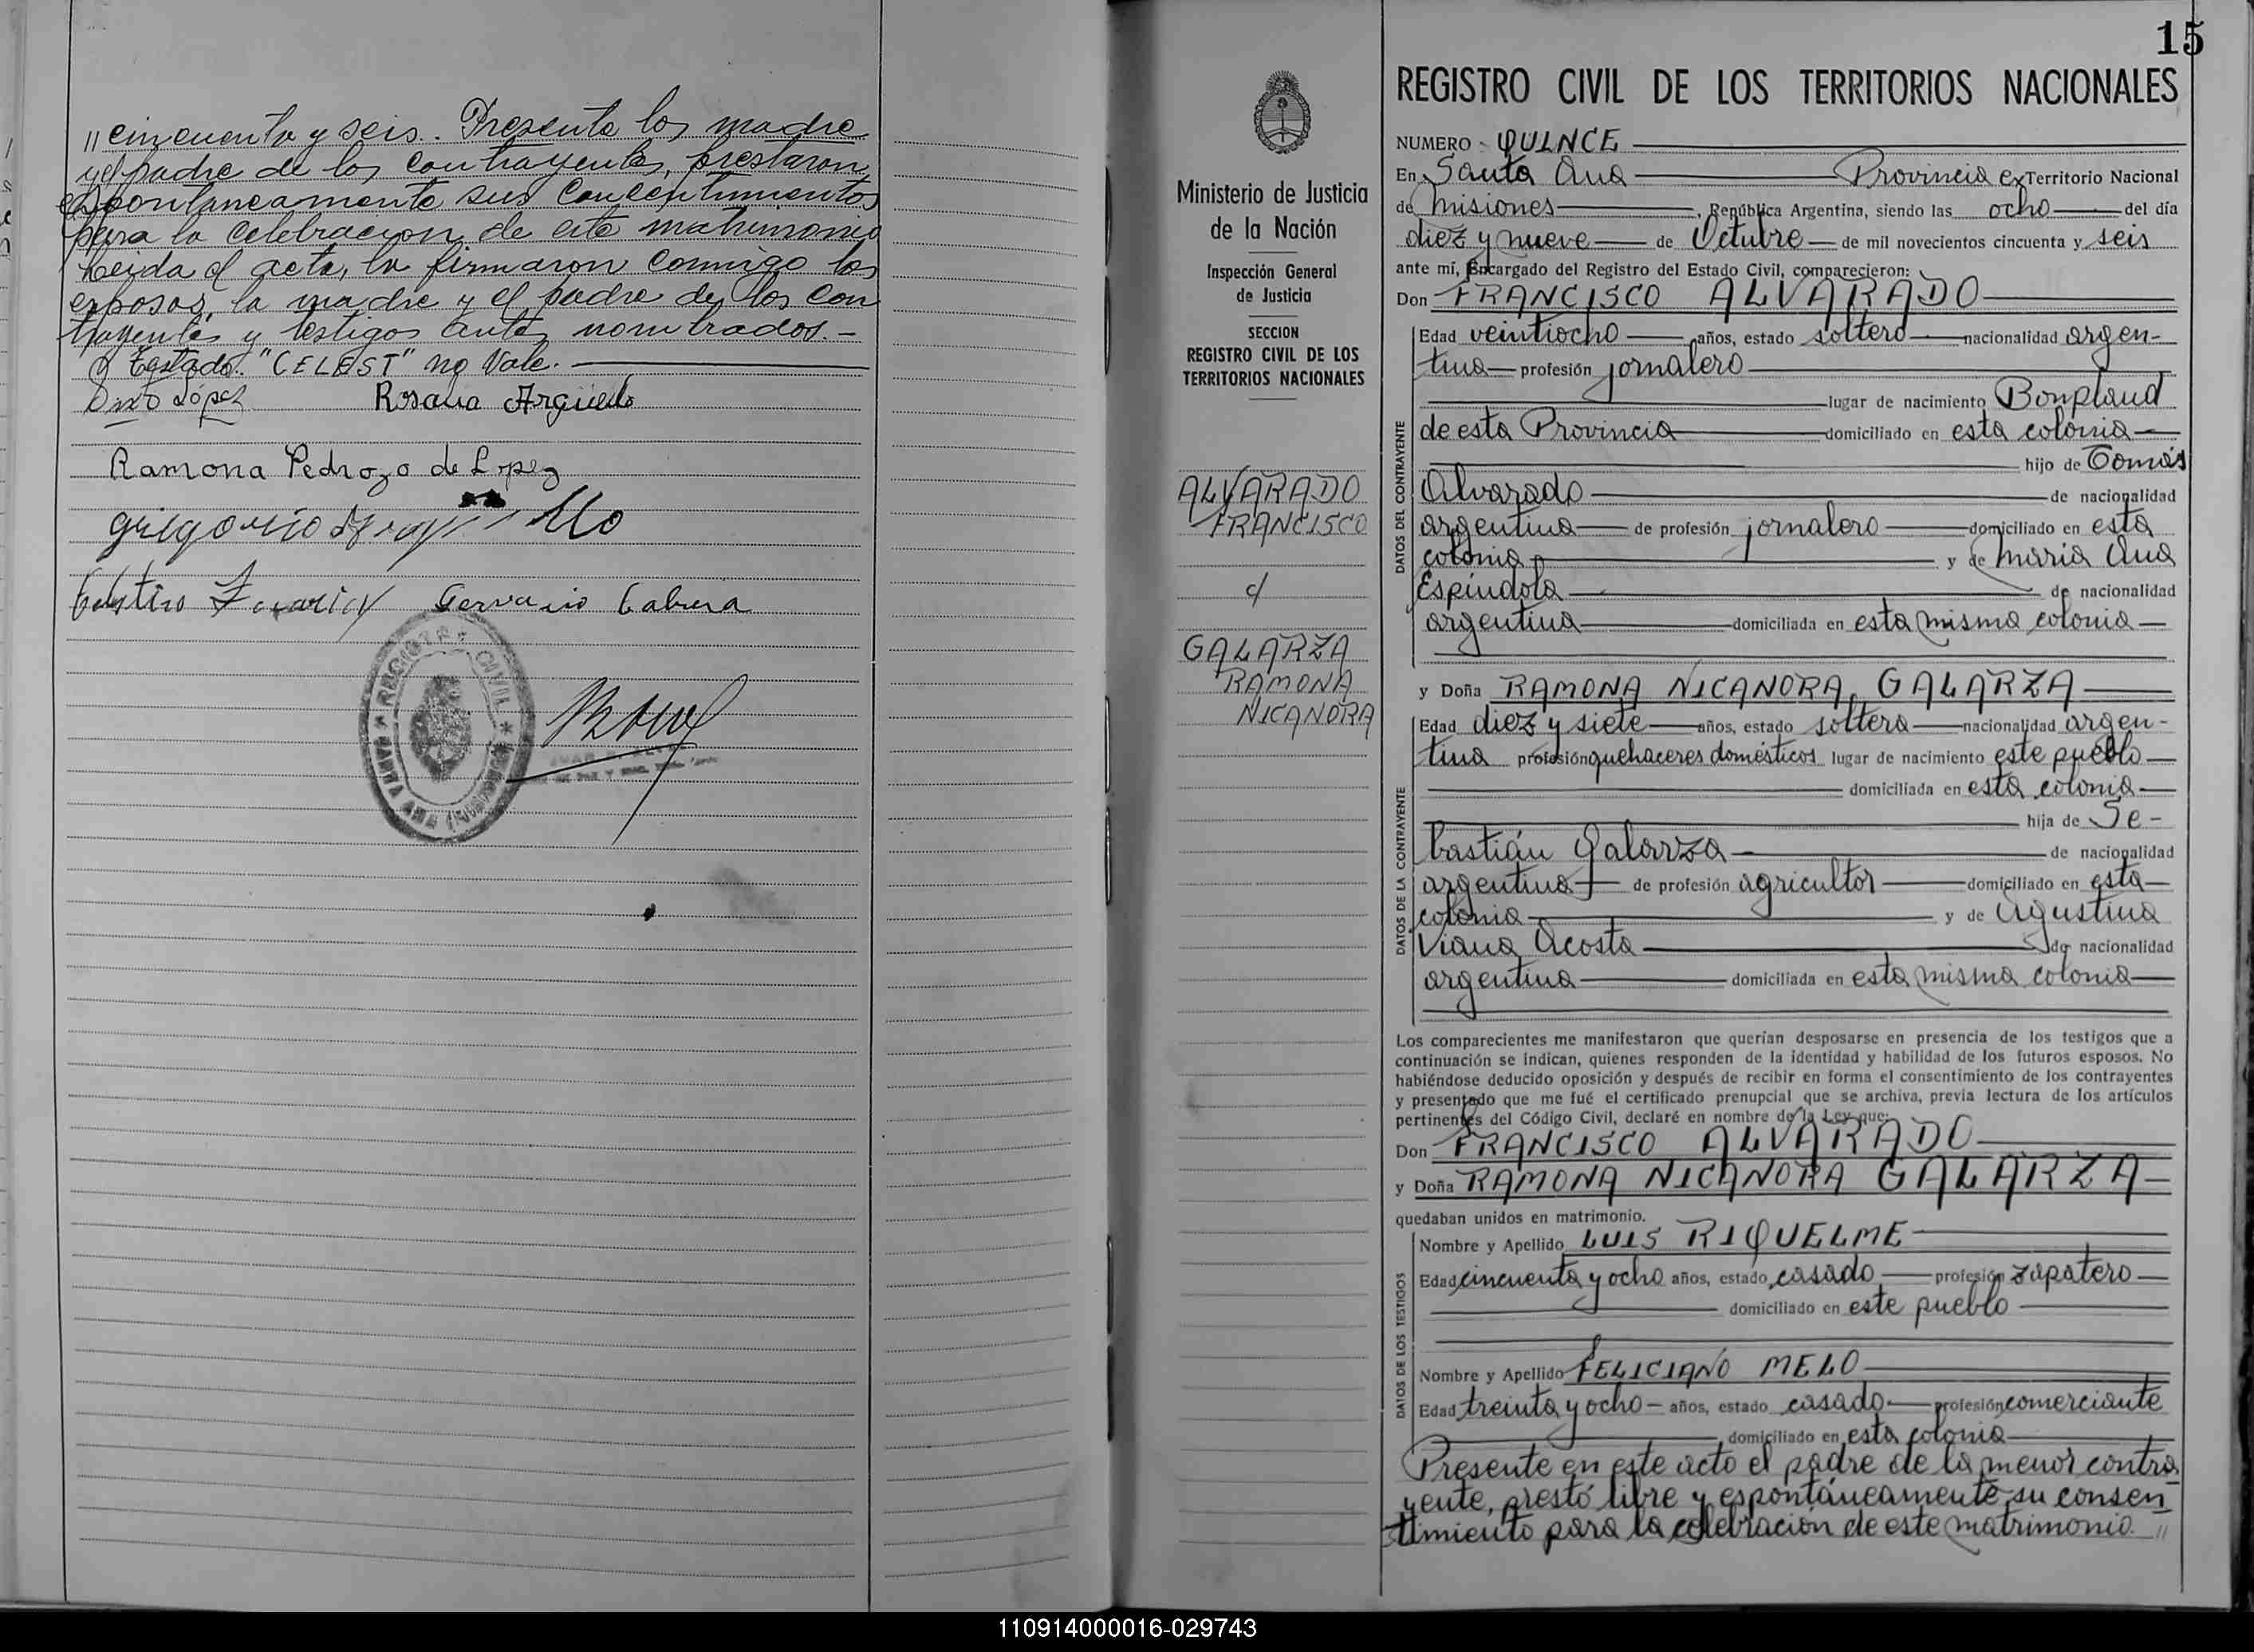 // cincuenta y seis.. Presente los madre
y el padre de los contrayentes, prestaron
espontaneamente sus concentimientos
para la celebracion de este matrimonio
Leida el acta, la firmaron conmigo los
esposos, la madre y el padre de los con
trayentes y testigos antes nombrados.-
Testado: "CELEST" no Vale.
López Rosalia Argüello
Ramona Pedrozo de Lopez
Gervacio Cabrera
REGISTRO CIVIL
SANTA ANA (Misiones)
15
Ministerio de Justicia
de la Nación
Inspección General
de Justicia
SECCION
REGISTRO CIVIL DE LOS
TERRITORIOS NACIONALES
ALVARADO
FRANCISCO
c/
GALARZA
RAMONA
NICANORA
REGISTRO CIVIL DE LOS TERRITORIOS NACIONALES
NUMERO QUINCE
En Santa Ana Provincia ex Territorio Nacional
de Misiones, República Argentina, siendo las ocho del día
diez y nueve de Octubre de mil novecientos cincuenta y seis
ante mí, Encargado del Registro del Estado Civil, comparecieron:
Don FRANCISCO ALVARADO
DATOS DEL CONTRAYENTE
Edad veintiocho años, estado soltero nacionalidad argen-
tina profesión jornalero
lugar de nacimiento Bonpland
de esta Provincia domiciliado en esta colonia
hijo de Tomás
Alvarado de nacionalidad
argentina de profesión jornalero domiciliado en esta
colonia y de María Ana
Espíndola de nacionalidad
argentina domiciliada en esta misma colonia
y Doña RAMONA NICANORA GALARZA
DATOS DE LA CONTRAYENTE
Edad diez y siete años, estado soltera nacionalidad argen-
tina profesión quehaceres domésticos lugar de nacimiento este pueblo
domiciliada en esta colonia
hija de Se-
bastián Galarza de nacionalidad
argentina de profesión agricultor domiciliado en esta
colonia y de Agustina
Viana Acosta de nacionalidad
argentina domiciliada en esta misma colonia
Los comparecientes me manifestaron que querían desposarse en presencia de los testigos que a
continuación se indican, quienes responden de la identidad y habilidad de los futuros esposos. No
habiéndose deducido oposición y después de recibir en forma el consentimiento de los contrayentes
y presentado que me fué el certificado prenupcial que se archiva, previa lectura de los artículos
pertinentes del Código Civil, declaré en nombre de la Ley que:
Don FRANCISCO ALVARADO
y Doña RAMONA NICANORA GALARZA
quedaban unidos en matrimonio.
DATOS DE LOS TESTIGOS
Nombre y Apellido LUIS RIQUELME
Edad cincuenta y ocho años, estado casado profesión zapatero
domiciliado en este pueblo
Nombre y Apellido FELICIANO MELO
Edad treinta y ocho años, estado casado profesión comerciante
domiciliado en esta colonia
Presente en este acto el padre de la menor contra
yente, prestó libre y espontáneamente su consen
timiento para la celebración de este matrimonio. //
110914000016-029743